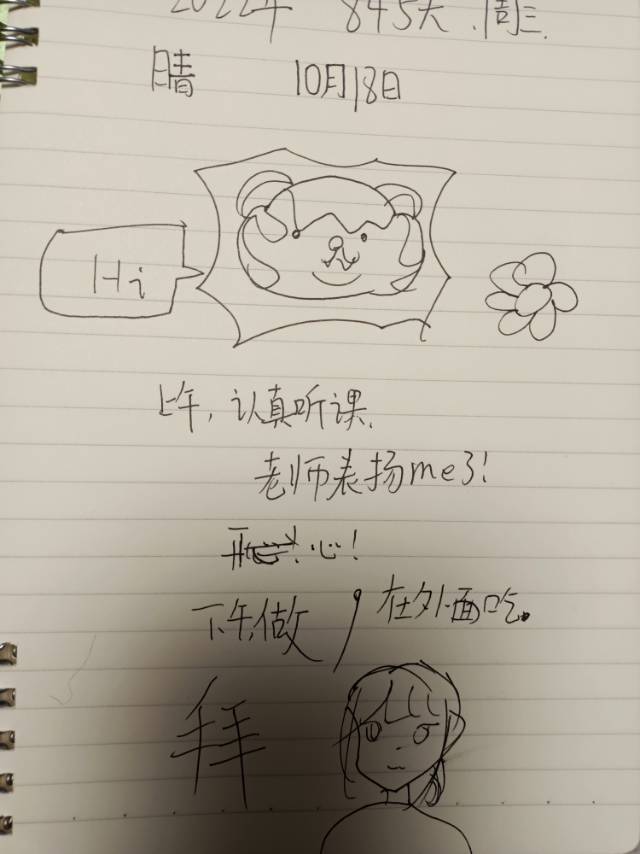 2022年 845天.周三.
晴 10月18日
Hi
上午,认真听课.
老师表扬me了!
开心!
下午,做,在外面吃.
拜